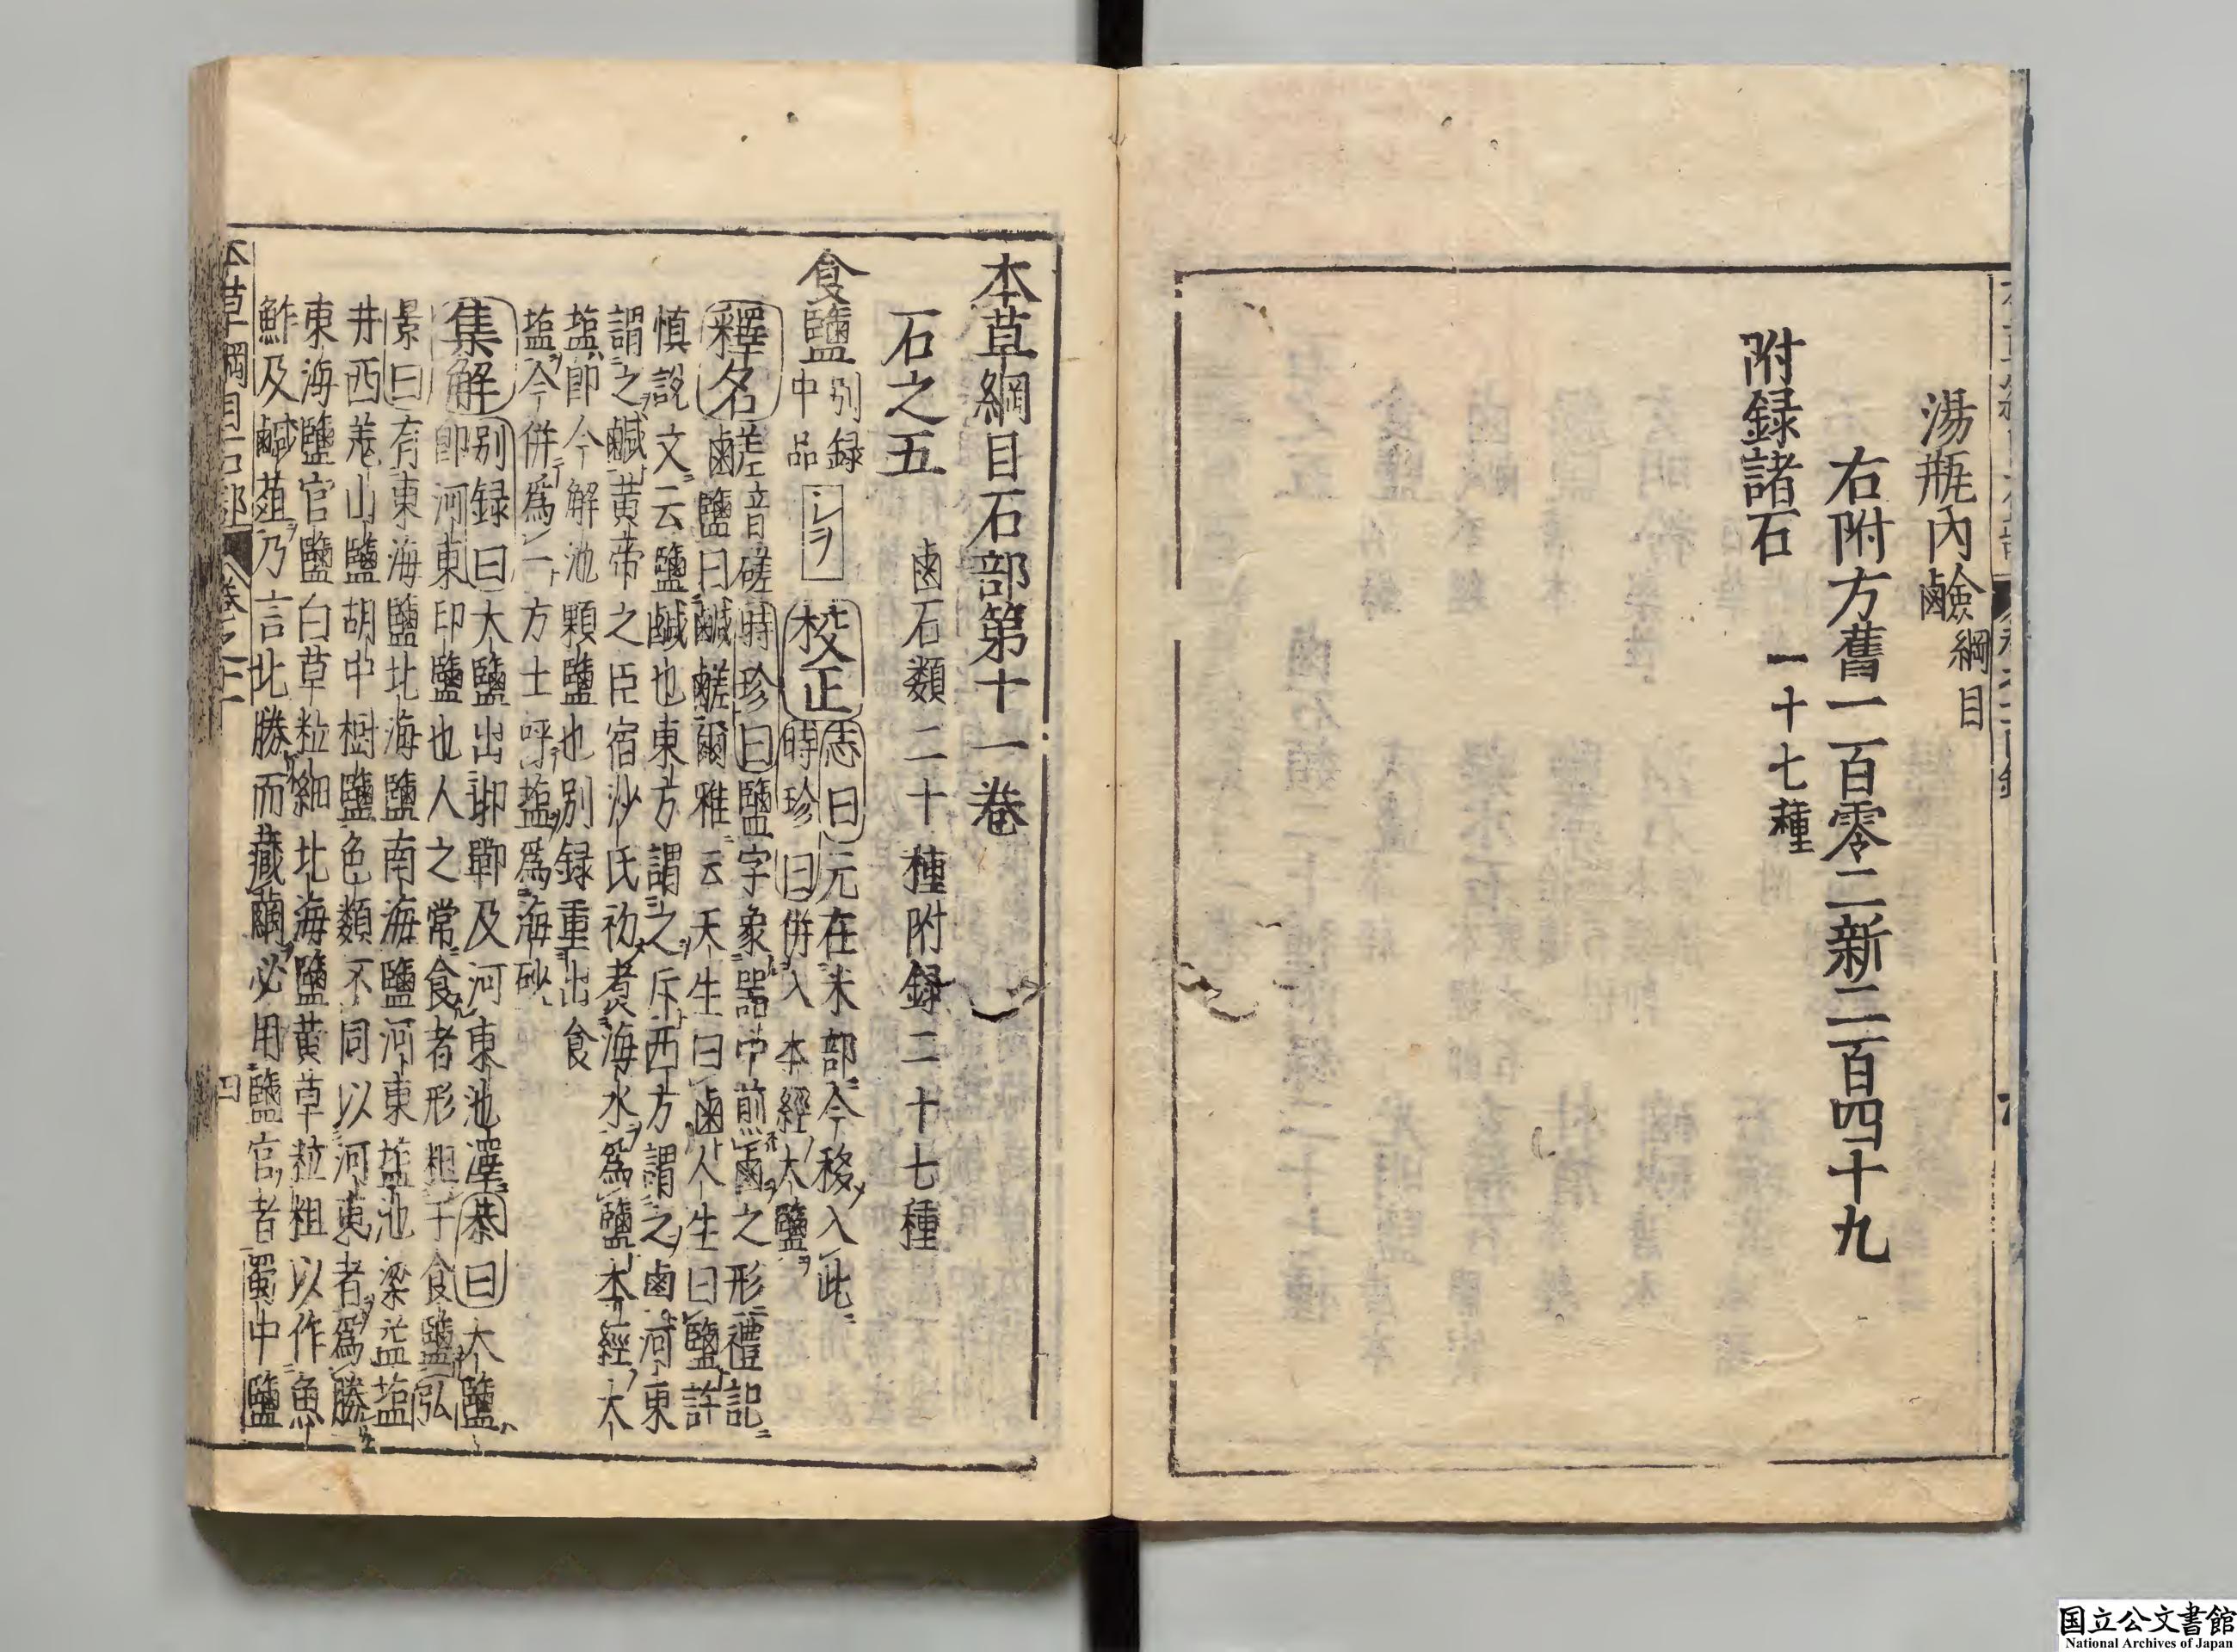 湯瓶內鹼 綱目
右附方舊一百零二新二百四十九
附録諸石 一十七種
本草綱目石部第十一卷
石之五 鹵石類二十種附録二十七種
食鹽 別録中品 シヲ 校正 志曰元在米部今移入此時珍曰併入本經大鹽
釋名 鹺音磋時珍曰鹽字象器中煎鹵之形禮記
鹵鹽曰鹹鹺爾雅云天生曰鹵人生曰鹽許
慎說文云鹽鹹也東方謂之斥西方謂之鹵河東
謂之鹹黃帝之臣宿沙氏初煮海水為鹽本經大
塩即今解池顆鹽也別録重出食
塩今併爲一方士呼塩爲海砂
集解 別録曰大鹽出邯鄲及河東池澤恭曰大鹽
即河東印鹽也人之常食者形粗于食鹽弘
景曰有東海鹽北海鹽南海鹽河東塩池梁益塩
井西羌山鹽胡中樹鹽色類不同以河東者爲勝
東海鹽官鹽白草粒細北海鹽黃草粒粗以作魚
鮓及鹹菹乃言北勝而藏繭必用鹽官者蜀中鹽
本草綱目石部 卷之十一 四
国立公文書館
National Archives of Japan